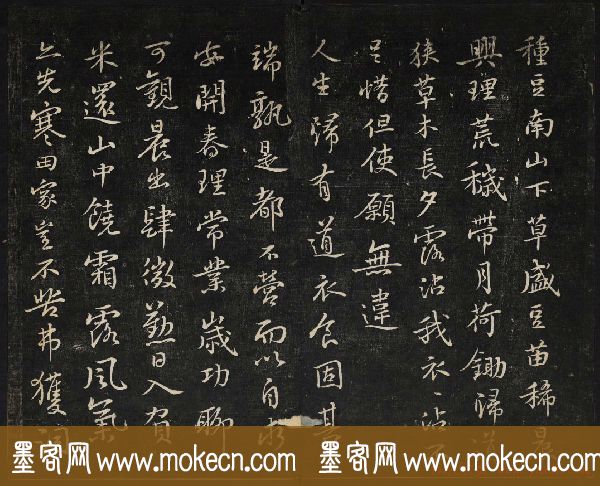 種豆南山下草盛豆苗稀晨
興理荒穢帶月荷鋤歸道
狹草木長夕露沾我衣〻沾不
足惜但使願無違
人生歸有道衣食固其
端孰是都不營而以自求
安開春理常業歲功聊
可觀晨出肆微勤日入負
米還山中饒霜露風氣
亦先寒田家豈不苦弗獲
墨客网 www.mokecn.com 墨客网 www.mokecn.com